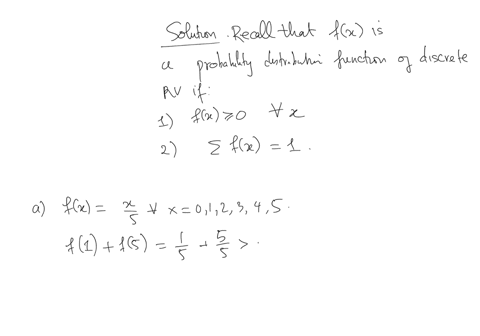 Solution. Recall that f(x) is
a probability distribution function of discrete
RV if:
1) f(x) ≥ 0 ∀ x
2) Σ f(x) = 1.
a) f(x) = x/5 ∀ x = 0, 1, 2, 3, 4, 5.
f(1) + f(5) = 1/5 + 5/5 > .